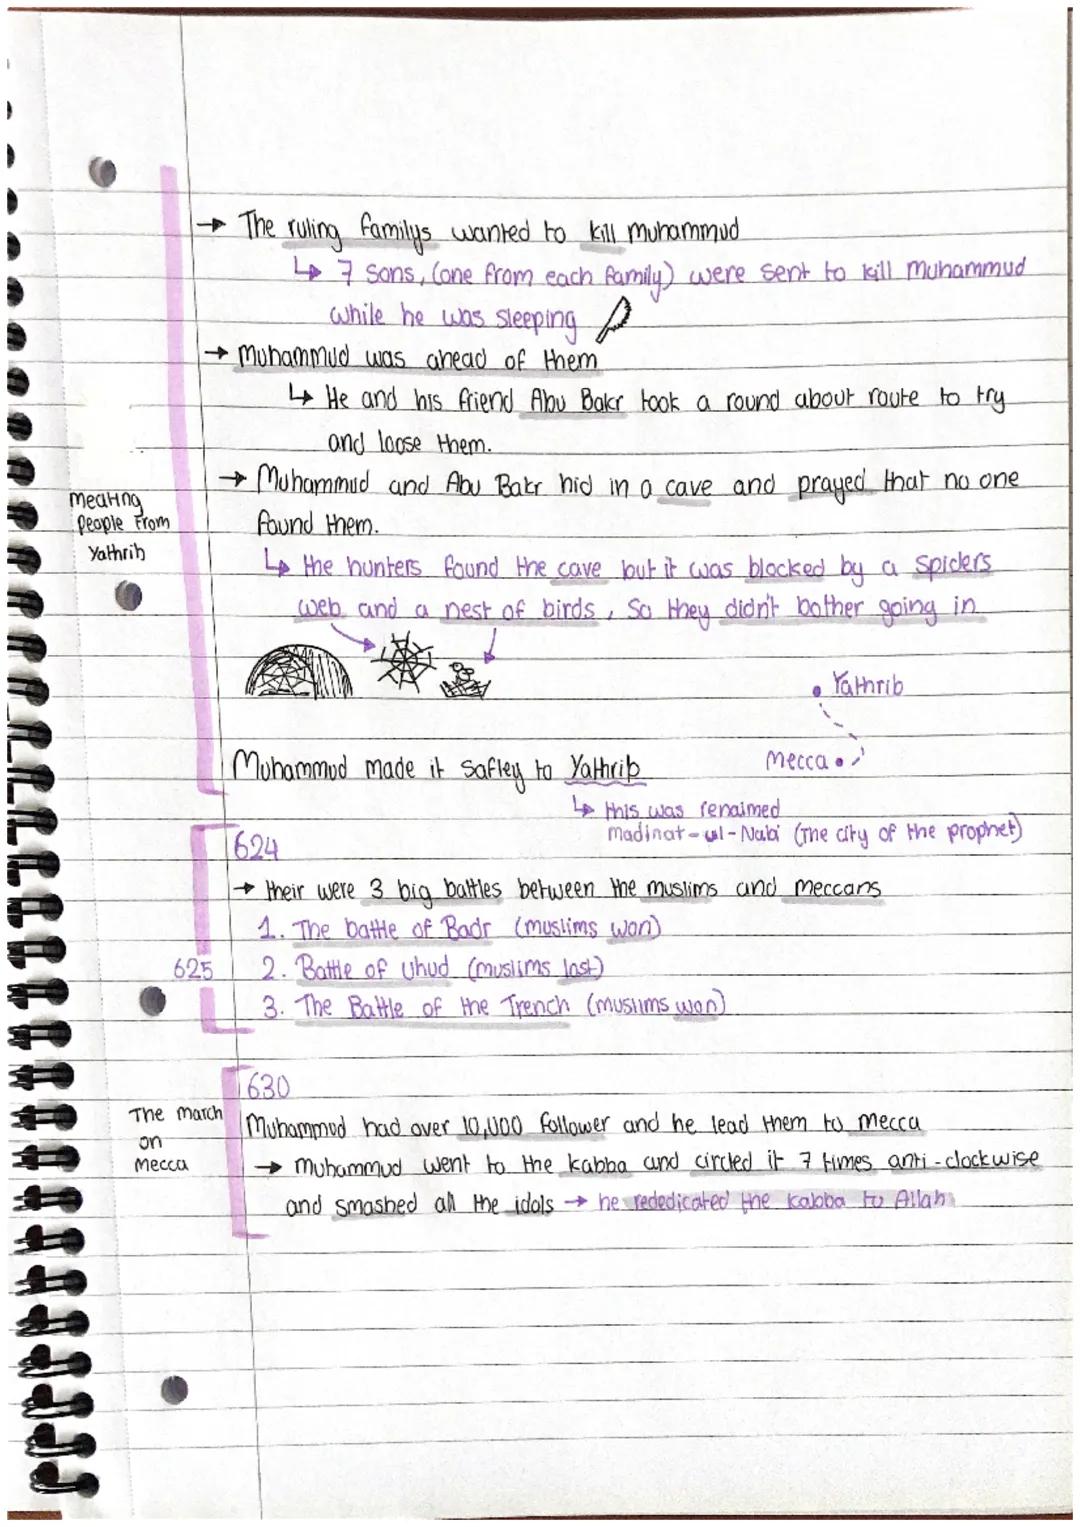 → The ruling familys wanted to kill muhammud
↳ 7 sons, (one from each family) were sent to kill Muhammud
while he was sleeping
→ Muhammud was ahead of them
↳ He and his friend Abu Bakr took a round about route to try
and loose them.
→ Muhammud and Abu Bakr hid in a cave and prayed that no one
found them.
Meating
People From
Yathrib
↳ the hunters found the cave but it was blocked by a spiders
web and a nest of birds, so they didn't bother going in
Yathrib
Mecca
Muhammud made it safley to Yathrib
↳ this was renaimed
madinat-ul-Nabi (The city of the prophet)
624
→ their were 3 big battles between the muslims and meccans
1. The battle of Badr (muslims won)
625
2. Battle of Uhud (muslims lost)
3. The Battle of the Trench (muslims won)
630
The march
on
Mecca
Muhammud had over 10,000 follower and he lead them to mecca
→ muhammud went to the kabba and circled it 7 times anti-clockwise
and smashed all the idols → he rededicated the kabba to Allah